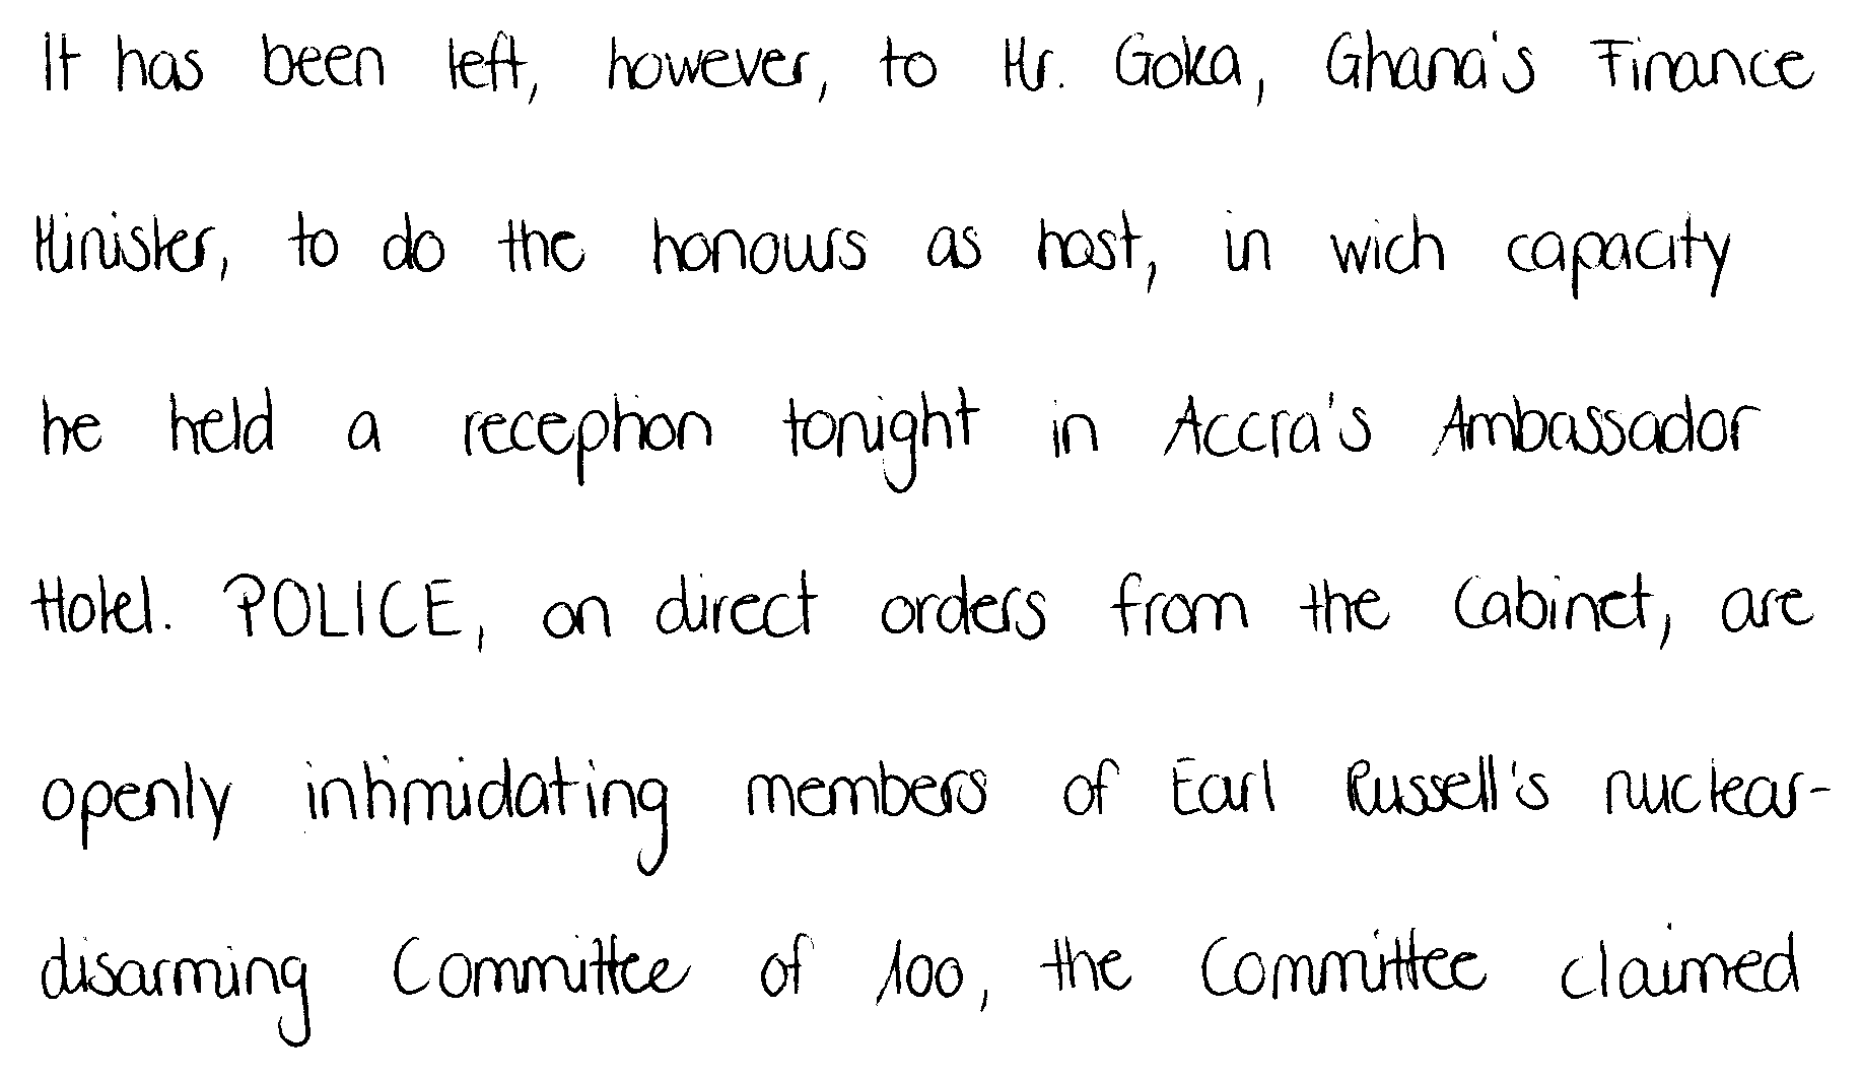 It has been left, however, to Mr. Goka, Ghana's Finance
Minister, to do the honours as host, in wich capacity
he held a reception tonight in Accra's Ambassador
Hotel. POLICE, on direct orders from the Cabinet, are
openly intimidating members of Earl Russell's nuclear-
disarming Committee of 100, the Committee claimed